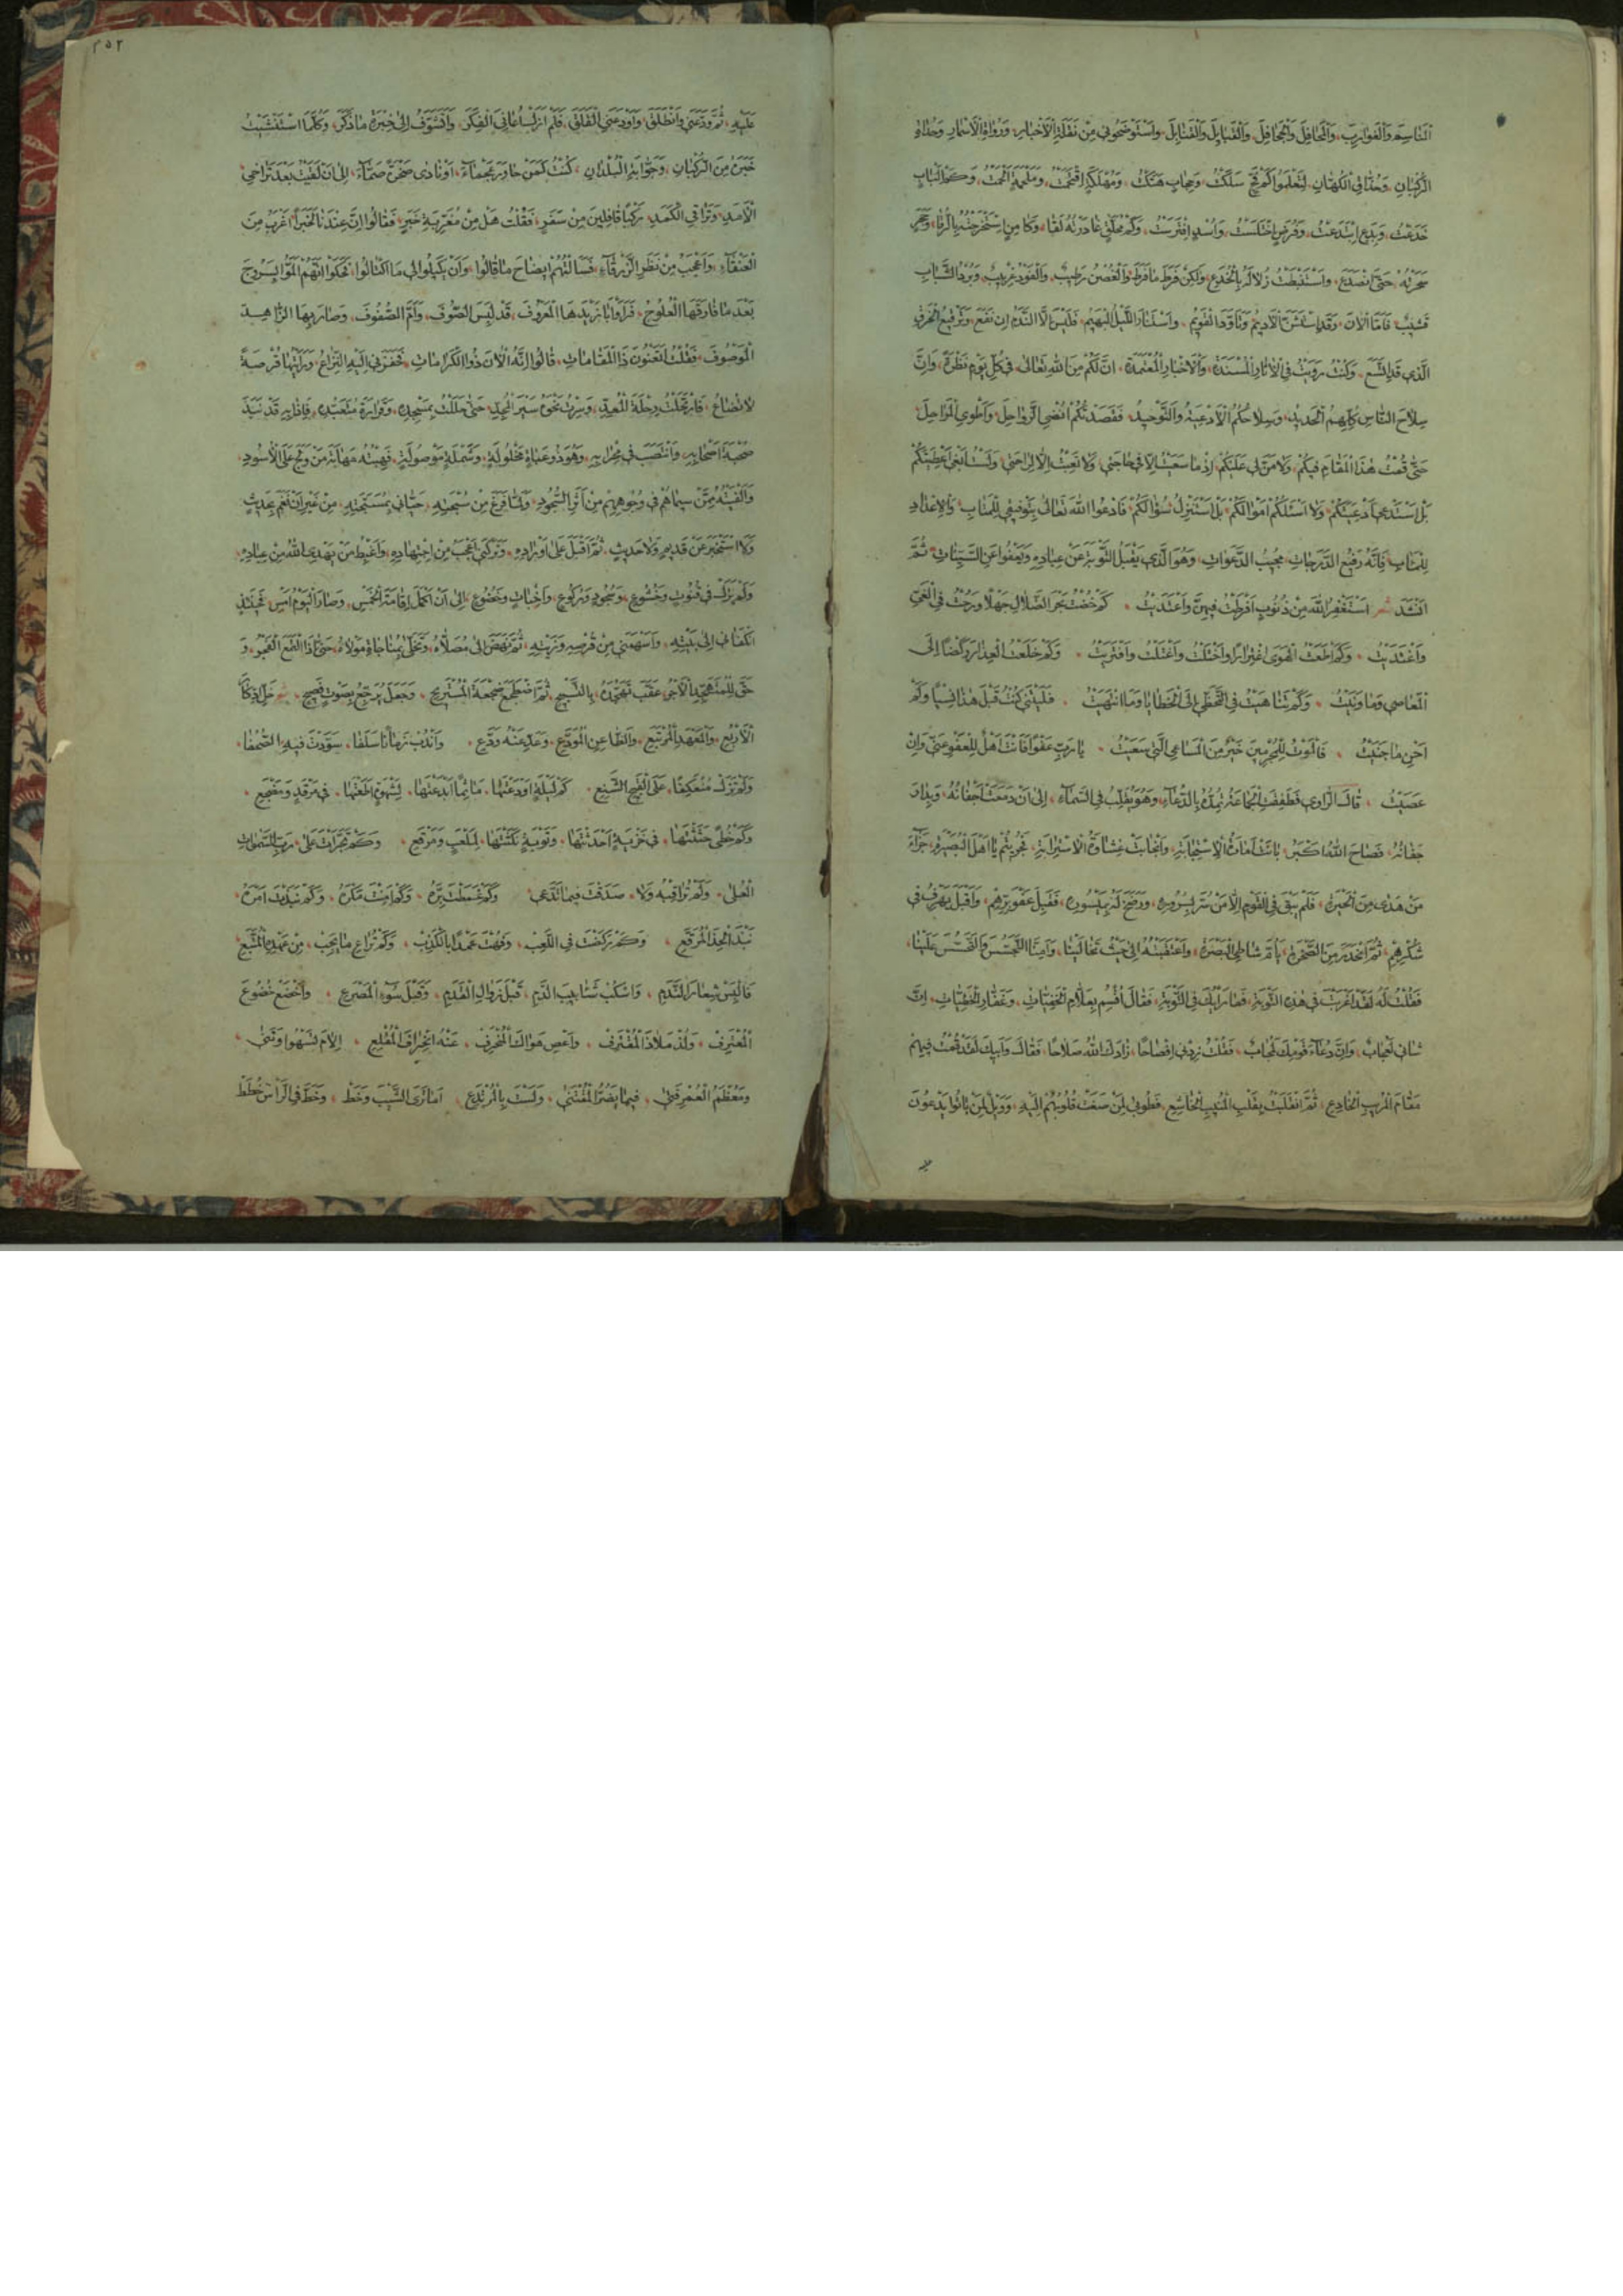 المناسم والغوارب والمحافل والجحافل والقبايل والقنابل واستوضحوني من نقلة الاخبار ورواة الاسمار وحداة
الركبان وحذاق الكهان لتعلموا كم فج سلكت وحجاب هتكت ومهلكة اقتحمت وملحمة الحمت وكم الباب
خدعت وبدع ابتدعت وفرص اختلست واسد افترست وكم محلق غادرته لقا وكامن استخرجته بالرقا وحجر
سحرته حتى انصدع واستنبطت زلاله بالخدع ولكن فرط ما فرط والغصن رطيب والفود غربيب وبرد الشباب
قشيب فاما الان وقد استشن الاديم وتاود القويم واستنار الليل البهيم فليس الا الندم ان نفع وترقيع الخرق
الذي قد اتسع وكنت رويت في الاثار المسندة والاخبار المعتمدة ان لكم من الله تعالى في كل يوم نظرة وان
سلاح الناس كلهم الحديد وسلاحكم الادعية والتوحيد فقصدتكم انضي الرواحل واطوي المراحل
حتى قمت هذا المقام فيكم ولا من لي عليكم اذ ما سعيت الا في حاجتي ولا تعبت الا لراحتي ولست ابغي اعطيتكم
بل استدعي ادعيتكم ولا اسئلكم اموالكم بل استنزل سؤالكم فادعوا الله تعالى بتوفيقي للمتاب والاعداد
للماب فانه رفيع الدرجات مجيب الدعوات وهو الذي يقبل التوبة عن عباده ويعفوا عن السيئات ثم
انشد شعر استغفر الله من ذنوب افرطت فيهن واعتديت كم خضت بحر الضلال جهلا ورحت في الغي
واغتديت وكم اطعت الهوى اغترارا واختلت واغتلت وافتريت وكم خلعت العذار ركضا الى
المعاصي وما ونيت وكم تناهيت في التخطي الى الخطايا وما انتهيت فليتني كنت قبل هذا نسيا ولم
اجن ما جنيت فالموت للمجرمين خير من المساعي التي سعيت يا رب عفوا فانت اهل للعفو عني وان
عصيت قال الراوي فطفقت الجماعة تمده بالدعاء وهو يقلب في السماء الى ان دمعت اجفانه وبدا
جفانه فصاح الله اكبر بانت امارة الاستجابة وانجابت غشاوة الاسترابة فجزيتم يا اهل البصيرة جزاء
من هدى من الحيرة فلم يبق في القوم الا من سر بسروره ورضخ له بميسوره فقبل عفو برهم واقبل يهرف في
شكرهم ثم انحدر من الصخرة يام شاطئ البصرة واعتقبته الى حيث تخالينا وامنا التجسس والتحسس علينا
فقلت له لقد اغربت في هذه النوبة فما رايك في التوبة فقال اقسم بعلام الخفيات وغفار الخطيات ان
شاني لعجاب وان دعاء قومك لمجاب فقلت زدني افصاحا زادك الله صلاحا فقال وابيك لقد قمت فيهم
مقام المريب الخادع ثم انقلبت بقلب المنيب الخاشع فطوبى لمن صغت قلوبهم اليه وويل لمن باتوا يدعون
٢٥٢
عليه ثم ودعني وانطلق واودعني القلق فلم ازل اعاني الفكر واتشوف الى خبرة ما ذكر وكلما استنشيت
خبره من الركبان وجوابة البلدان كنت كمن حاور عجماء او نادى صخرة صماء الى ان لقيت بعد تراخي
الامد وتراقي الكمد ركبا قافلين من سفر فقلت هل من مغربة خبر فقالوا ان عندنا لخبرا اغرب من
العنقاء واعجب من نظر الزرقاء فسالتهم ايضاح ما قالوا وان يكيلوا لي ما اكتالوا فحكوا انهم الموا بسروج
بعد ما فارقها العلوج فراوا ابا زيدها المعروف قد لبس الصوف وام الصفوف وصار بها الزاهد
الموصوف فقلت اتعنون ذا المقامات قالوا انه الان ذو الكرامات فحفزني اليه النزاع ورايتها فرصة
لا تضاع فارتحلت رحلة المعد وسرت نحوه سير المجد حتى حللت بمسجده وقرارة متعبده فاذا به قد نبذ
صحبة اصحابه وانتصب في محرابه وهو ذو عباءة مخلولة وشملة موصولة فهبته مهابة من ولج على الاسود
والفيته ممن سيماهم في وجوههم من اثر السجود ولما فرغ من سبحته حياني بمسبحته من غير ان نغم بحديث
ولا استخبر عن قديم ولا حديث ثم اقبل على اوراده وتركني اعجب من اجتهاده واغبط من يهدي الله من عباده
ولم يزل في قنوت وخشوع وسجود وركوع واخبات وخضوع الى ان اكمل اقامة الخمس وصار اليوم امس فحينئذ
انكفا بي الى بيته واسهمني من قرصه وزيته ثم نهض الى مصلاه وتخلى بمناجاة مولاه حتى اذا التمع الفجر و
حق للمتهجد الاجر عقب تهجده بالتسبيح ثم اضطجع ضجعة المستريح وجعل يرجع بصوت فصيح شعر خل ادكار
الاربع والمعهد المرتبع والظاعن المودع وعد عنه ودع واندب زمانا سلفا سودت فيه الصحفا
ولم تزل معتكفا على القبيح الشنع كم ليلة اودعتها ماثما ابدعتها لشهوة اطعتها في مرقد ومضجع
وكم خطى حثثتها في خزية احدثتها وتوبة نكثتها لملعب ومرتع وكم تجرات على رب السموات
العلى ولم تراقبه ولا صدقت فيما تدعي وكم غمطت بره وكم امنت مكره وكم نبذت امره
نبذ الحذا المرقع وكم ركضت في اللعب وفهت عمدا بالكذب ولم تراع ما يجب من عهده المتبع
فالبس شعار الندم واسكب شابيب الدم قبل زوال القدم وقبل سوء المصرع واخضع خضوع
المعترف ولذ ملاذ المقترف واعص هواك وانحرف عنه انحراف المقلع الام تسهو وتني
ومعظم العمر فني فيما يضر المقتني ولست بالمرتدع اما ترى الشيب وخط وخط في الراس خطط